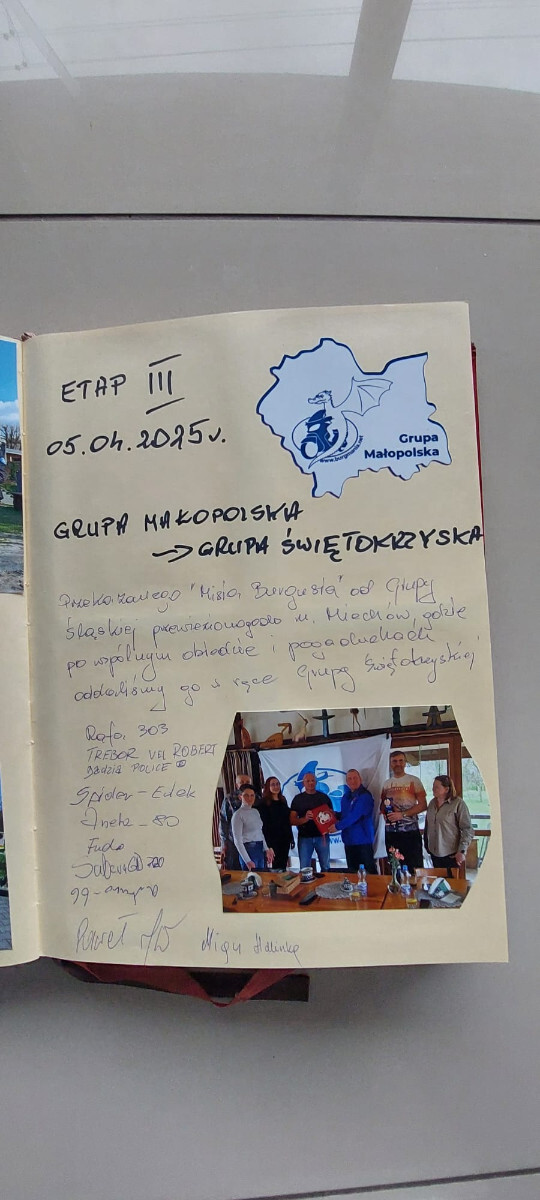 ETAP III
05.04.2025r.
www.burgmania.net
Grupa
Małopolska
GRUPA MAŁOPOLSKA
→ GRUPA ŚWIĘTOKRZYSKA
Przekazanego "Misia Burgusia" od Grupy
Śląskiej przewieziono do m. Miechów, gdzie
po wspólnym obiedzie i pogaduchach
oddaliśmy go w ręce Grupy Świętokrzyskiej
Rafa 303
TREBOR vel ROBERT
Dadzia POLICE
Spider-Edek
Aneta-80
Fudo
Paweł